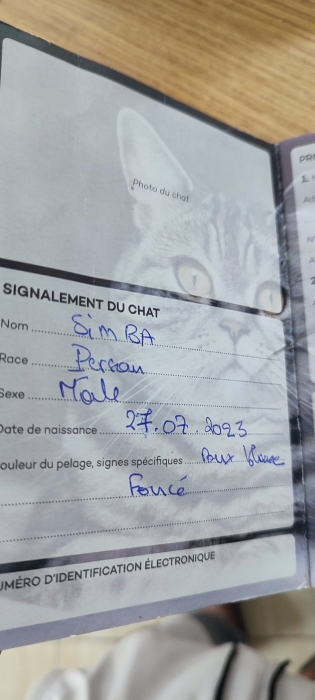 Photo du chat
SIGNALEMENT DU CHAT
Nom SimBA
Race Persan
Sexe Male
Date de naissance 27.07.2023
ouleur du pelage, signes spécifiques
Foncé
UMÉRO D'IDENTIFICATION ÉLECTRONIQUE
PR
1.